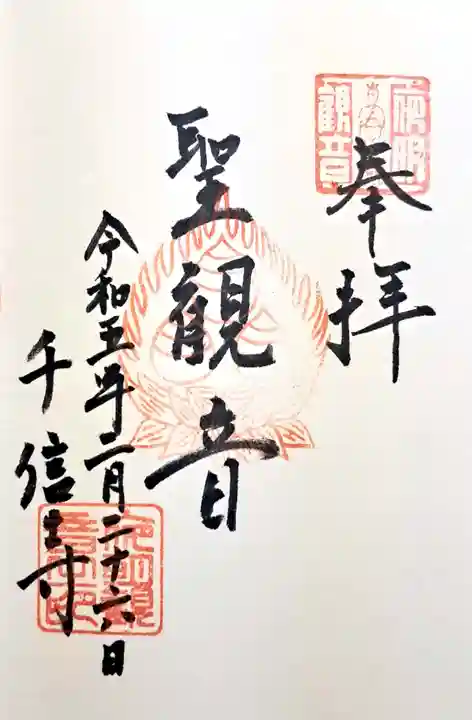 奉拝
聖観音
令和五年二月二十六日
千信寺